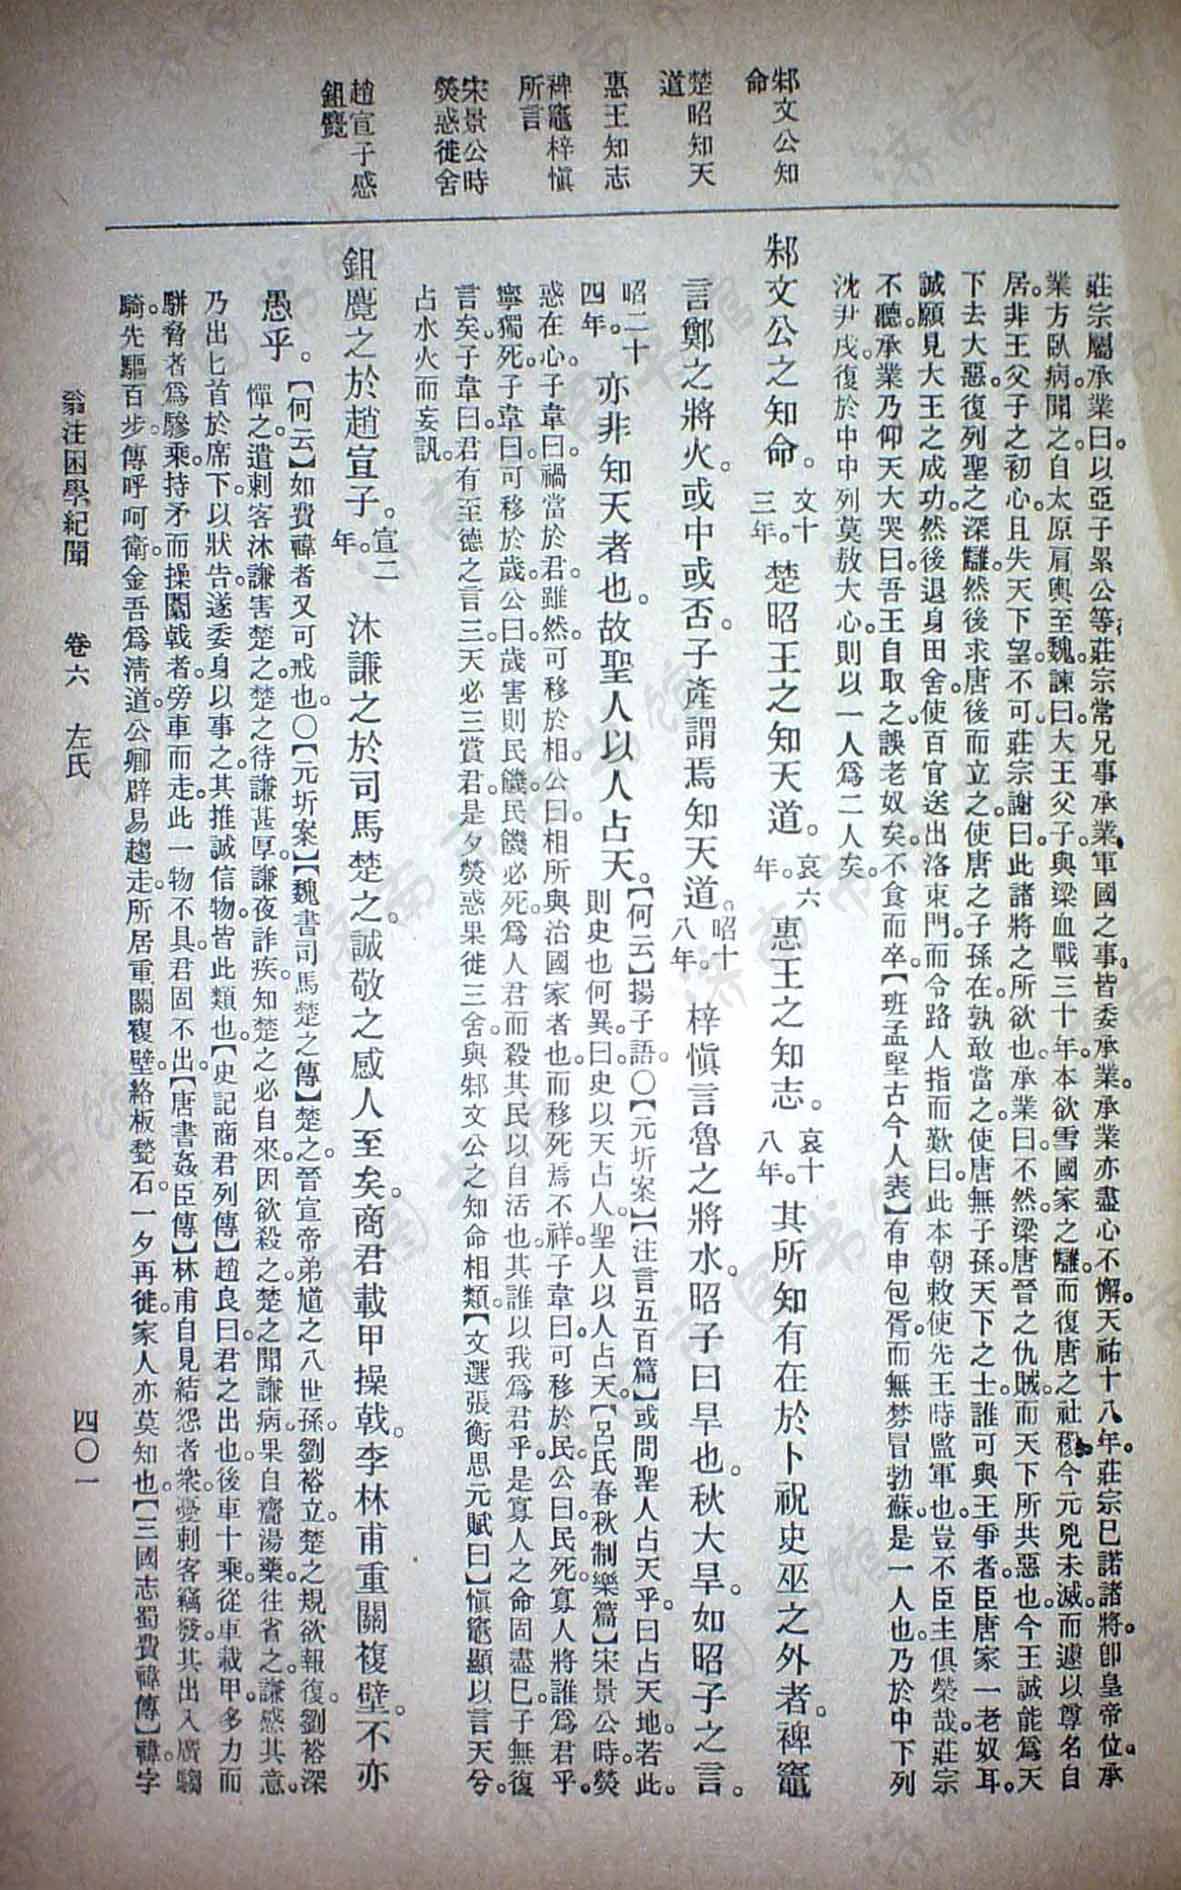 邾文公知
命
楚昭知天
道
惠王知志
裨竈梓愼
所言
宋景公時
熒惑徙舍
趙宣子感
鉏麑
莊宗屬承業曰。以亞子累公等。莊宗常兄事承業。軍國之事。皆委承業。承業亦盡心不懈。天祐十八年。莊宗已諾諸將。卽皇帝位。承
業方臥病。聞之。自太原肩輿至魏。諫曰。大王父子。與梁血戰三十年。本欲雪國家之讎。而復唐之社稷。今元兇未滅。而遽以尊名自
居。非王父子之初心。且失天下望。不可。莊宗謝曰。此諸將之所欲也。承業曰。不然。梁唐晉之仇賊。而天下所共惡也。今王誠能爲天
下去大惡。復列聖之深讎。然後求唐後而立之。使唐之子孫在。孰敢當之。使唐無子孫。天下之士。誰可與王爭者。臣唐家一老奴耳。
誠願見大王之成功。然後退身田舍。使百官送出洛東門。而令路人指而歎曰。此本朝敕使先王時監軍也。豈不臣主俱榮哉。莊宗
不聽。承業乃仰天大哭曰。吾王自取之。誤老奴矣。不食而卒。【班孟堅古今人表】有申包胥。而無棼冒勃蘇。是一人也。乃於中下列
沈尹戌。復於中中列莫敖大心。則以一人爲二人矣。
邾文公之知命。文十三年。楚昭王之知天道。哀六年。惠王之知志。哀十八年。其所知有在於卜祝史巫之外者。裨竈
言鄭之將火。或中或否。子產謂焉知天道。昭十八年。梓愼言魯之將水。昭子曰旱也。秋大旱。如昭子之言。
昭二十四年。亦非知天者也。故聖人以人占天。【何云】揚子語。〇【元圻案】【注言五百篇】或問聖人占天乎。曰占天地。若此。
則史也何異。曰史以天占人。聖人以人占天。【呂氏春秋制樂篇】宋景公時。熒
惑在心。子韋曰。禍當於君。雖然。可移於相。公曰。相所與治國家者也。而移死焉不祥。子韋曰。可移於民。公曰。民死。寡人將誰爲君乎。
寧獨死。子韋曰。可移於歲。公曰。歲害則民饑。民饑必死。爲人君而殺其民以自活也。其誰以我爲君乎。是寡人之命固盡已。子無復
言矣。子韋曰。君有至德之言三。天必三賞君。是夕熒惑果徙三舍。與邾文公之知命相類。【文選張衡思元賦曰】愼竈顯以言天兮。
占水火而妄訊。
鉏麑之於趙宣子。宣二年。沐謙之於司馬楚之。誠敬之感人至矣。商君載甲操戟。李林甫重關複壁。不亦
愚乎。【何云】如費禕者又可戒也。〇【元圻案】【魏書司馬楚之傳】楚之。晉宣帝弟馗之八世孫。劉裕立。楚之規欲報復。劉裕深
憚之。遣刺客沐謙害楚之。楚之待謙甚厚。謙夜詐疾。知楚之必自來。因欲殺之。楚之聞謙病。果自齎湯藥。往省之。謙感其意。
乃出匕首於席下。以狀告。遂委身以事之。其推誠信物。皆此類也。【史記商君列傳】趙良曰。君之出也。後車十乘。從車載甲。多力而
駢脅者爲驂乘。持矛而操闟戟者。旁車而走。此一物不具。君固不出。【唐書姦臣傳】林甫自見結怨者衆。憂刺客竊發。其出入廣騶
騎。先驅百步。傳呼呵衛。金吾爲淸道。公卿辟易趨走。所居重關複壁。絡板甃石。一夕再徙。家人亦莫知也。【三國志蜀費禕傳】禕字
翁注困學紀聞　卷六　左氏　四〇一